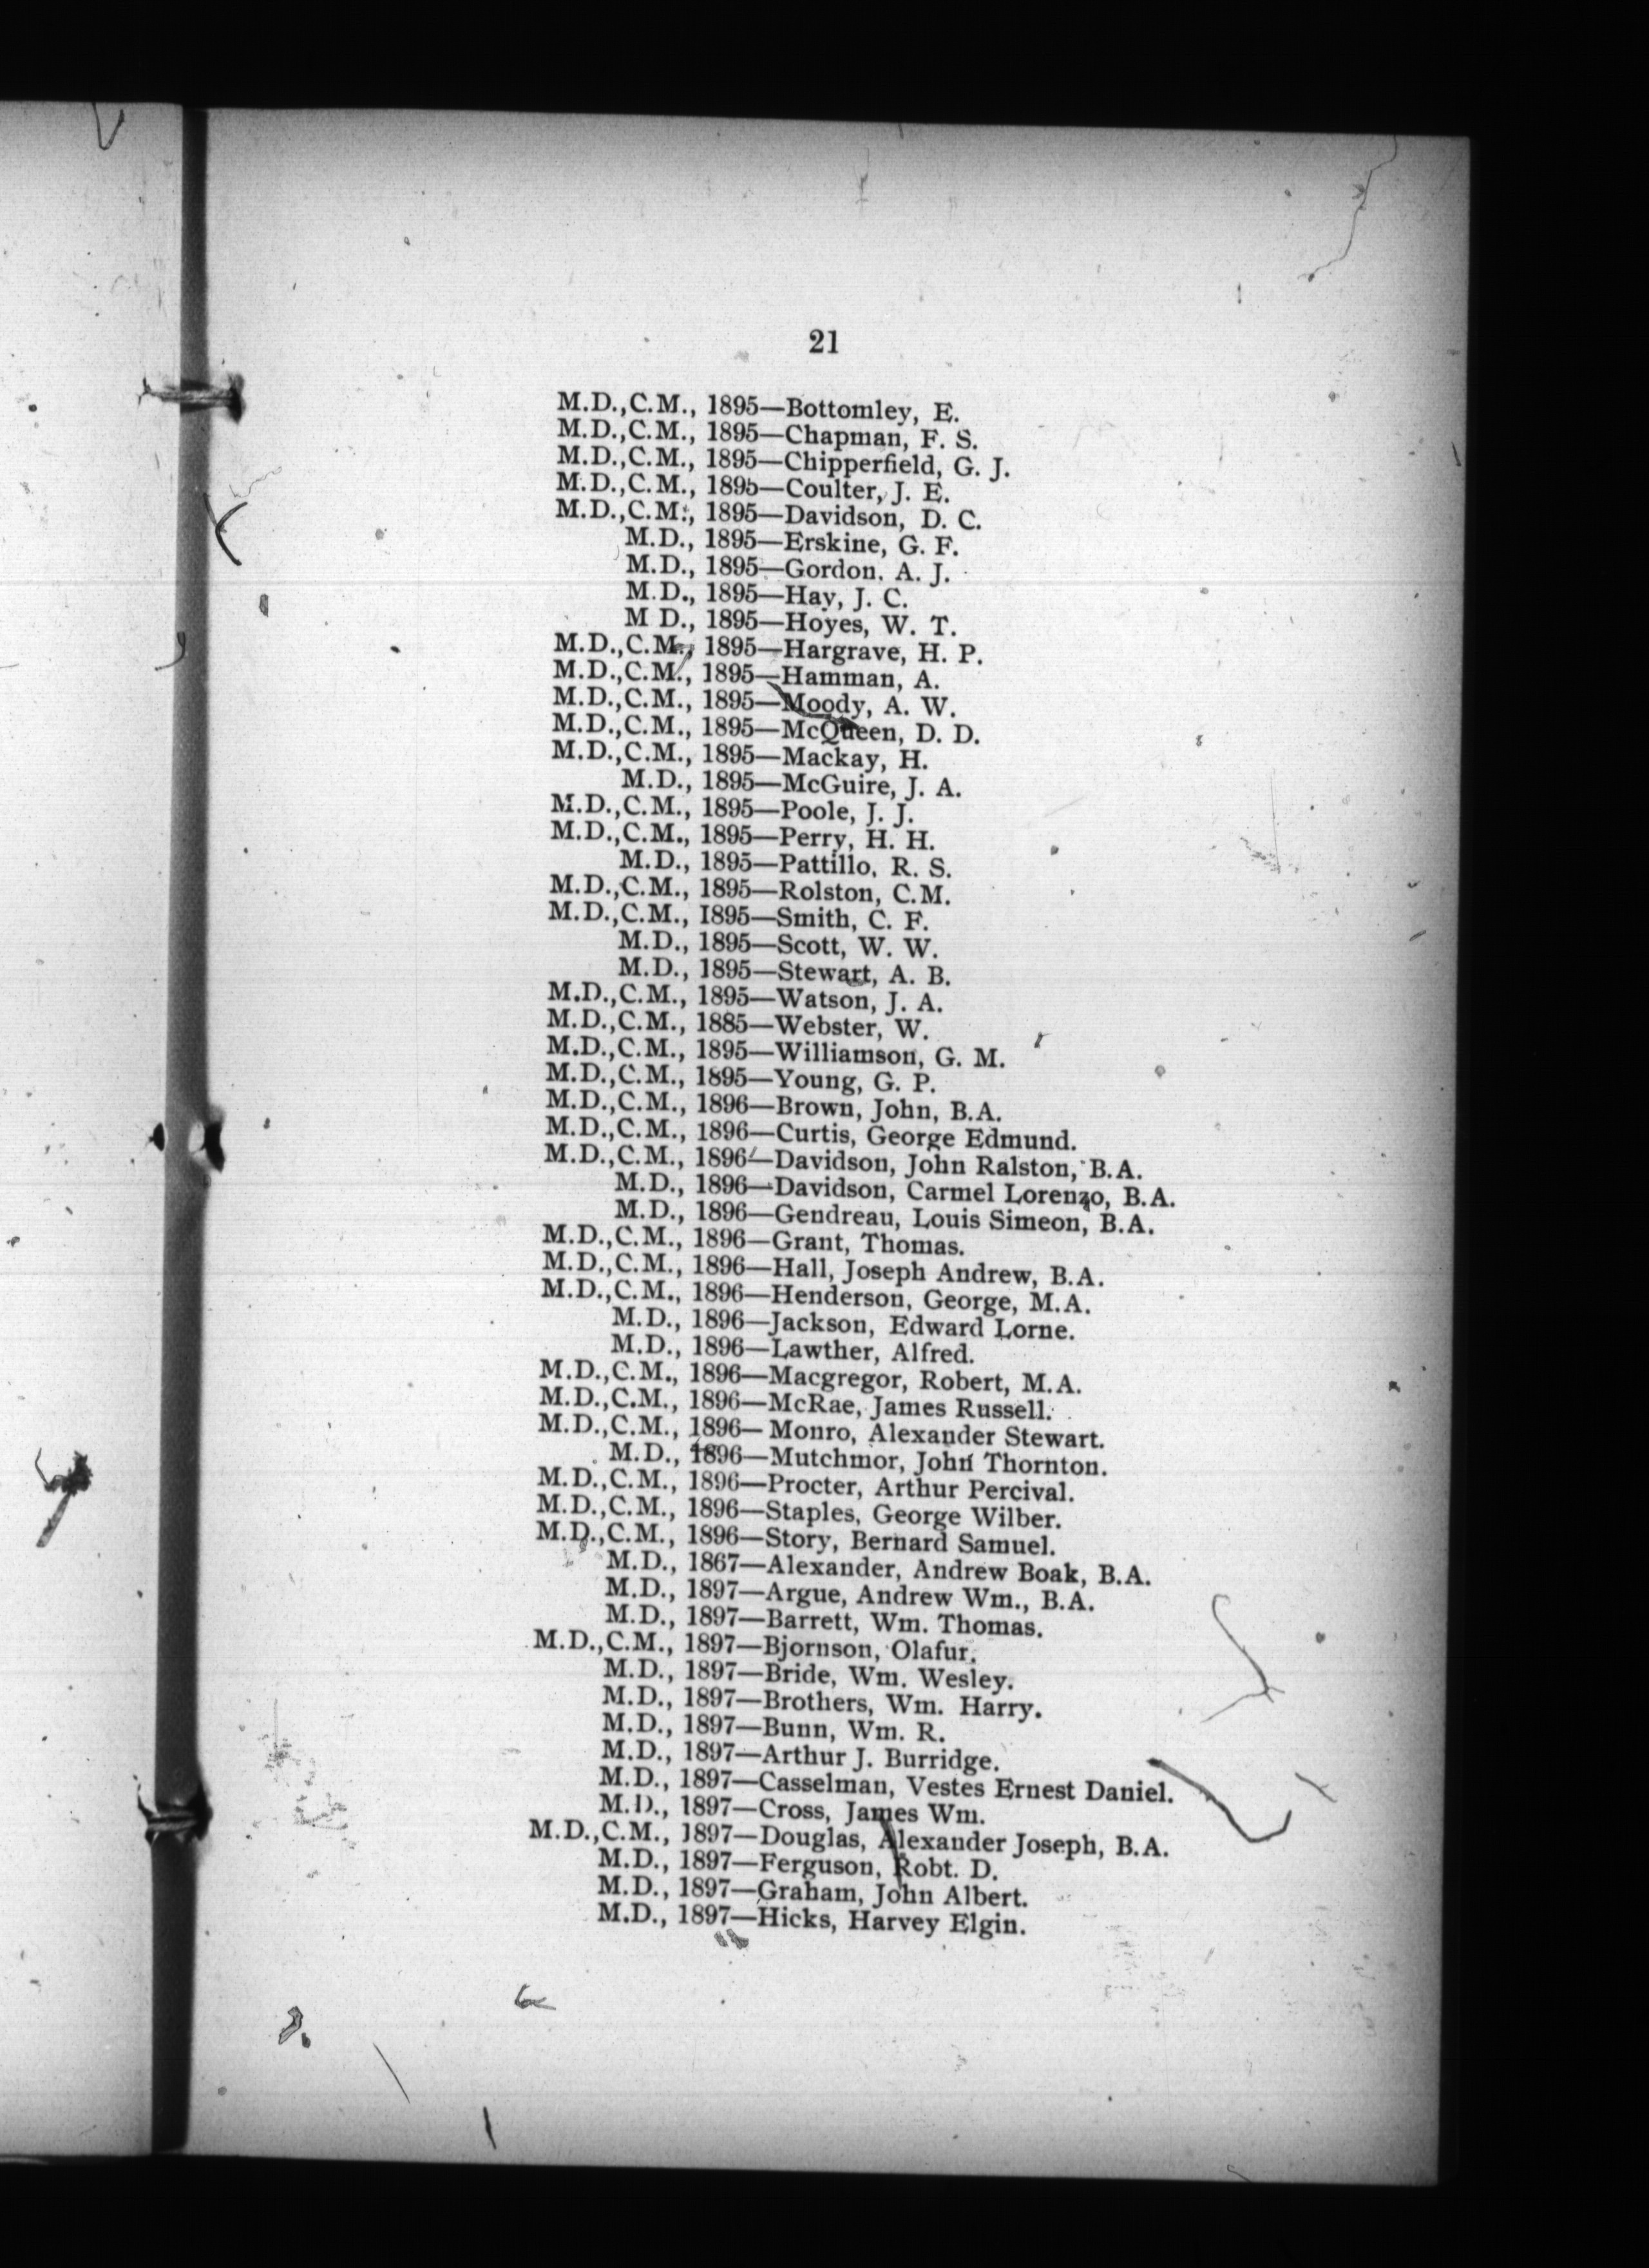 21
M.D.,C.M., 1895—Bottomley, E.
M.D.,C.M., 1895—Chapman, F. S.
M.D.,C.M., 1895—Chipperfield, G. J.
M.D.,C.M., 1895—Coulter, J. E.
M.D.,C.M., 1895—Davidson, D. C.
M.D., 1895—Erskine, G. F.
M.D., 1895—Gordon. A. J.
M.D., 1895—Hay, J. C.
M D., 1895—Hoyes, W. T.
M.D.,C.M., 1895—Hargrave, H. P.
M.D.,C.M., 1895—Hamman, A.
M.D.,C.M., 1895—Moody, A. W.
M.D.,C.M., 1895—McQueen, D. D.
M.D.,C.M., 1895—Mackay, H.
M.D., 1895—McGuire, J. A.
M.D.,C.M., 1895—Poole, J. J.
M.D.,C.M., 1895—Perry, H. H.
M.D., 1895—Pattillo, R. S.
M.D.,C.M., 1895—Rolston, C.M.
M.D.,C.M., 1895—Smith, C. F.
M.D., 1895—Scott, W. W.
M.D., 1895—Stewart, A. B.
M.D.,C.M., 1895—Watson, J. A.
M.D.,C.M., 1885—Webster, W.
M.D.,C.M., 1895—Williamson, G. M.
M.D.,C.M., 1895—Young, G. P.
M.D.,C.M., 1896—Brown, John, B.A.
M.D.,C.M., 1896—Curtis, George Edmund.
M.D.,C.M., 1896—Davidson, John Ralston, B.A.
M.D., 1896—Davidson, Carmel Lorenzo, B.A.
M.D., 1896—Gendreau, Louis Simeon, B.A.
M.D.,C.M., 1896—Grant, Thomas.
M.D.,C.M., 1896—Hall, Joseph Andrew, B.A.
M.D.,C.M., 1896—Henderson, George, M.A.
M.D., 1896—Jackson, Edward Lorne.
M.D., 1896—Lawther, Alfred.
M.D.,C.M., 1896—Macgregor, Robert, M.A.
M.D.,C.M., 1896—McRae, James Russell.
M.D.,C.M., 1896—Monro, Alexander Stewart.
M.D., 1896—Mutchmor, John Thornton.
M.D.,C.M., 1896—Procter, Arthur Percival.
M.D.,C.M., 1896—Staples, George Wilber.
M.D.,C.M., 1896—Story, Bernard Samuel.
M.D., 1867—Alexander, Andrew Boak, B.A.
M.D., 1897—Argue, Andrew Wm., B.A.
M.D., 1897—Barrett, Wm. Thomas.
M.D.,C.M., 1897—Bjornson, Olafur.
M.D., 1897—Bride, Wm. Wesley.
M.D., 1897—Brothers, Wm. Harry.
M.D., 1897—Bunn, Wm. R.
M.D., 1897—Arthur J. Burridge.
M.D., 1897—Casselman, Vestes Ernest Daniel.
M.D., 1897—Cross, James Wm.
M.D.,C.M., 1897—Douglas, Alexander Joseph, B.A.
M.D., 1897—Ferguson, Robt. D.
M.D., 1897—Graham, John Albert.
M.D., 1897—Hicks, Harvey Elgin.